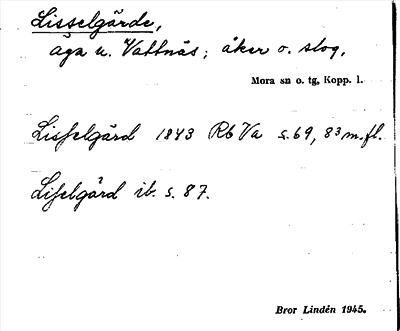 Lisselgärde,
äga u. Vattnäs; åker o. slog.
Mora sn o. tg, Kopp. l.
Lisselgärd 1843 Rb Va s. 69, 83 m. fl.
Lisselgård ib. s. 87.
Bror Lindén 1945.